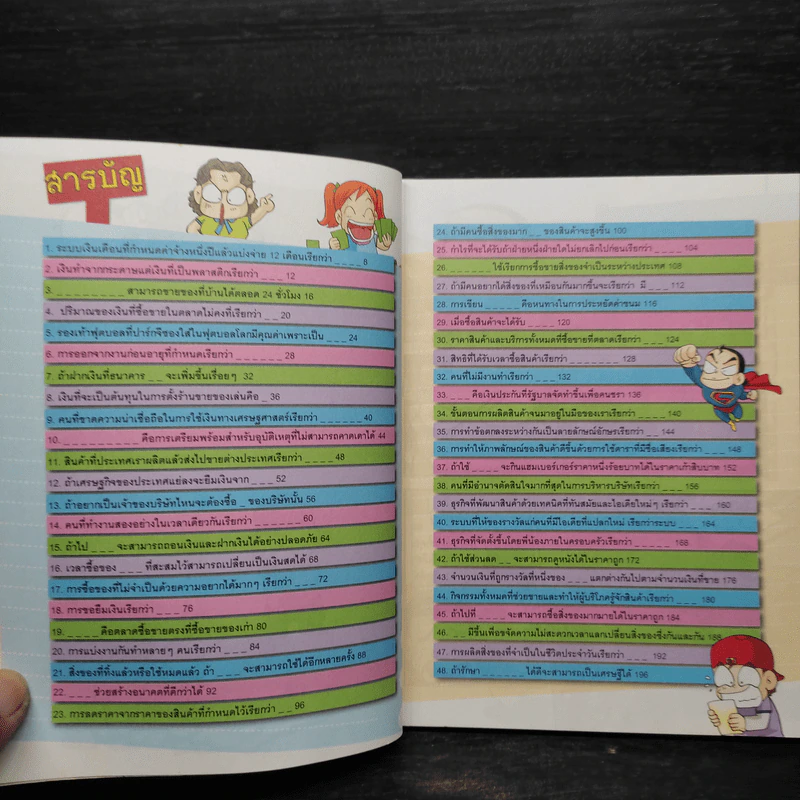 สารบัญ
1. ระบบเงินเดือนที่กำหนดค่าจ้างหนึ่งปีแล้วแบ่งจ่าย 12 เดือนเรียกว่า _ _ _ _ 8
2. เงินทำจากกระดาษแต่เงินที่เป็นพลาสติกเรียกว่า _ _ _ 12
3. _ _ _ _ _ _ _ _ สามารถขายของที่บ้านได้ตลอด 24 ชั่วโมง 16
4. ปริมาณของเงินที่ซื้อขายในตลาดไม่คงที่เรียกว่า _ _ 20
5. รองเท้าฟุตบอลที่ปาร์กจีซองใส่ในฟุตบอลโลกมีคุณค่าเพราะเป็น _ _ _ 24
6. การออกจากงานก่อนอายุที่กำหนดเรียกว่า _ _ _ _ _ _ _ 28
7. ถ้าฝากเงินที่ธนาคาร _ _ จะเพิ่มขึ้นเรื่อยๆ 32
8. เงินที่จะเป็นต้นทุนในการตั้งร้านขายของเล่นคือ _ 36
9. คนที่ขาดความน่าเชื่อถือในการใช้เงินทางเศรษฐศาสตร์เรียกว่า _ _ _ _ _ _ _ 40
10. _ _ _ _ _ _ _ _ คือการเตรียมพร้อมสำหรับอุบัติเหตุที่ไม่สามารถคาดเดาได้ 44
11. สินค้าที่ประเทศเราผลิตแล้วส่งไปขายต่างประเทศเรียกว่า _ _ _ _ 48
12. ถ้าเศรษฐกิจของประเทศแย่ลงจะยืมเงินจาก _ _ _ 52
13. ถ้าอยากเป็นเจ้าของบริษัทไหนจะต้องซื้อ _ ของบริษัทนั้น 56
14. คนที่ทำงานสองอย่างในเวลาเดียวกันเรียกว่า _ _ _ _ _ _ 60
15. ถ้าไป _ _ _ จะสามารถถอนเงินและฝากเงินได้อย่างปลอดภัย 64
16. เวลาซื้อของ _ _ _ ที่สะสมไว้สามารถเปลี่ยนเป็นเงินสดได้ 68
17. การซื้อของที่ไม่จำเป็นด้วยความอยากได้มากๆ เรียกว่า _ _ _ 72
18. การขอยืมเงินเรียกว่า _ _ _ 76
19. _ _ _ _ คือตลาดซื้อขายตรงที่ซื้อขายของเก่า 80
20. การแบ่งงานกันทำหลายๆ คนเรียกว่า _ _ _ 84
21. สิ่งของที่ทิ้งแล้วหรือใช้หมดแล้ว ถ้า _ _ _ _ จะสามารถใช้ได้อีกหลายครั้ง 88
22. _ _ _ ช่วยสร้างอนาคตที่ดีกว่าได้ 92
23. การลดราคาจากราคาของสินค้าที่กำหนดไว้เรียกว่า _ _ 96
24. ถ้ามีคนซื้อสิ่งของมาก _ _ ของสินค้าจะสูงขึ้น 100
25. กำไรที่จะได้รับถ้าฝ่ายหนึ่งฝ่ายใดไม่ยกเลิกไปก่อนเรียกว่า _ _ _ _ 104
26. _ _ _ _ _ _ ใช้เรียกการซื้อขายสิ่งของจำเป็นระหว่างประเทศ 108
27. ถ้ามีคนอยากได้สิ่งของที่เหมือนกันมากขึ้นจะเรียกว่า มี _ _ _ 112
28. การเขียน _ _ _ _ _ คือหนทางในการประหยัดค่าขนม 116
29. เมื่อซื้อสินค้าจะได้รับ _ _ _ _ 120
30. ราคาสินค้าและบริการทั้งหมดที่ซื้อขายที่ตลาดเรียกว่า _ _ _ _ 124
31. สิทธิที่ได้รับเวลาซื้อสินค้าเรียกว่า _ _ _ _ _ _ _ 128
32. คนที่ไม่มีงานทำเรียกว่า _ _ _ 132
33. _ _ _ คือเงินประกันที่รัฐบาลจัดทำขึ้นเพื่อคนชรา 136
34. ขั้นตอนการผลิตสินค้าจนมาอยู่ในมือของเราเรียกว่า _ _ _ _ _ 140
35. การทำข้อตกลงระหว่างกันเป็นลายลักษณ์อักษรเรียกว่า _ _ 144
36. การทำให้ภาพลักษณ์ของสินค้าดีขึ้นด้วยการใช้ดาราที่มีชื่อเสียงเรียกว่า _ _ _ 148
37. ถ้าใช้ _ _ _ จะกินแฮมเบอร์เกอร์ราคาหนึ่งร้อยบาทได้ในราคาเก้าสิบบาท 152
38. คนที่มีอำนาจตัดสินใจมากที่สุดในการบริหารบริษัทเรียกว่า _ _ _ 156
39. ธุรกิจที่พัฒนาสินค้าด้วยเทคนิคที่ทันสมัยและไอเดียใหม่ๆ เรียกว่า _ _ _ _ 160
40. ระบบที่ให้ของรางวัลแก่คนที่มีไอเดียที่แปลกใหม่ เรียกว่าระบบ _ _ _ 164
41. ธุรกิจที่จัดตั้งขึ้นโดยพี่น้องภายในครอบครัวเรียกว่า _ _ _ _ _ 168
42. ถ้าใช้ส่วนลด _ _ จะสามารถดูหนังได้ในราคาถูก 172
43. จำนวนเงินที่ถูกรางวัลที่หนึ่งของ _ _ _ แตกต่างกันไปตามจำนวนเงินที่ขาย 176
44. กิจกรรมทั้งหมดที่ช่วยขายและทำให้ผู้บริโภครู้จักสินค้าเรียกว่า _ _ _ 180
45. ถ้าไปที่ _ _ _ _ จะสามารถซื้อสิ่งของมากมายได้ในราคาถูก 184
46. _ _ มีขึ้นเพื่อขจัดความไม่สะดวกเวลาแลกเปลี่ยนสิ่งของซึ่งกันและกัน 188
47. การผลิตสิ่งของที่จำเป็นในชีวิตประจำวันเรียกว่า _ _ _ 192
48. ถ้ารักษา _ _ _ _ _ _ ได้ดีจะสามารถเป็นเศรษฐีได้ 196